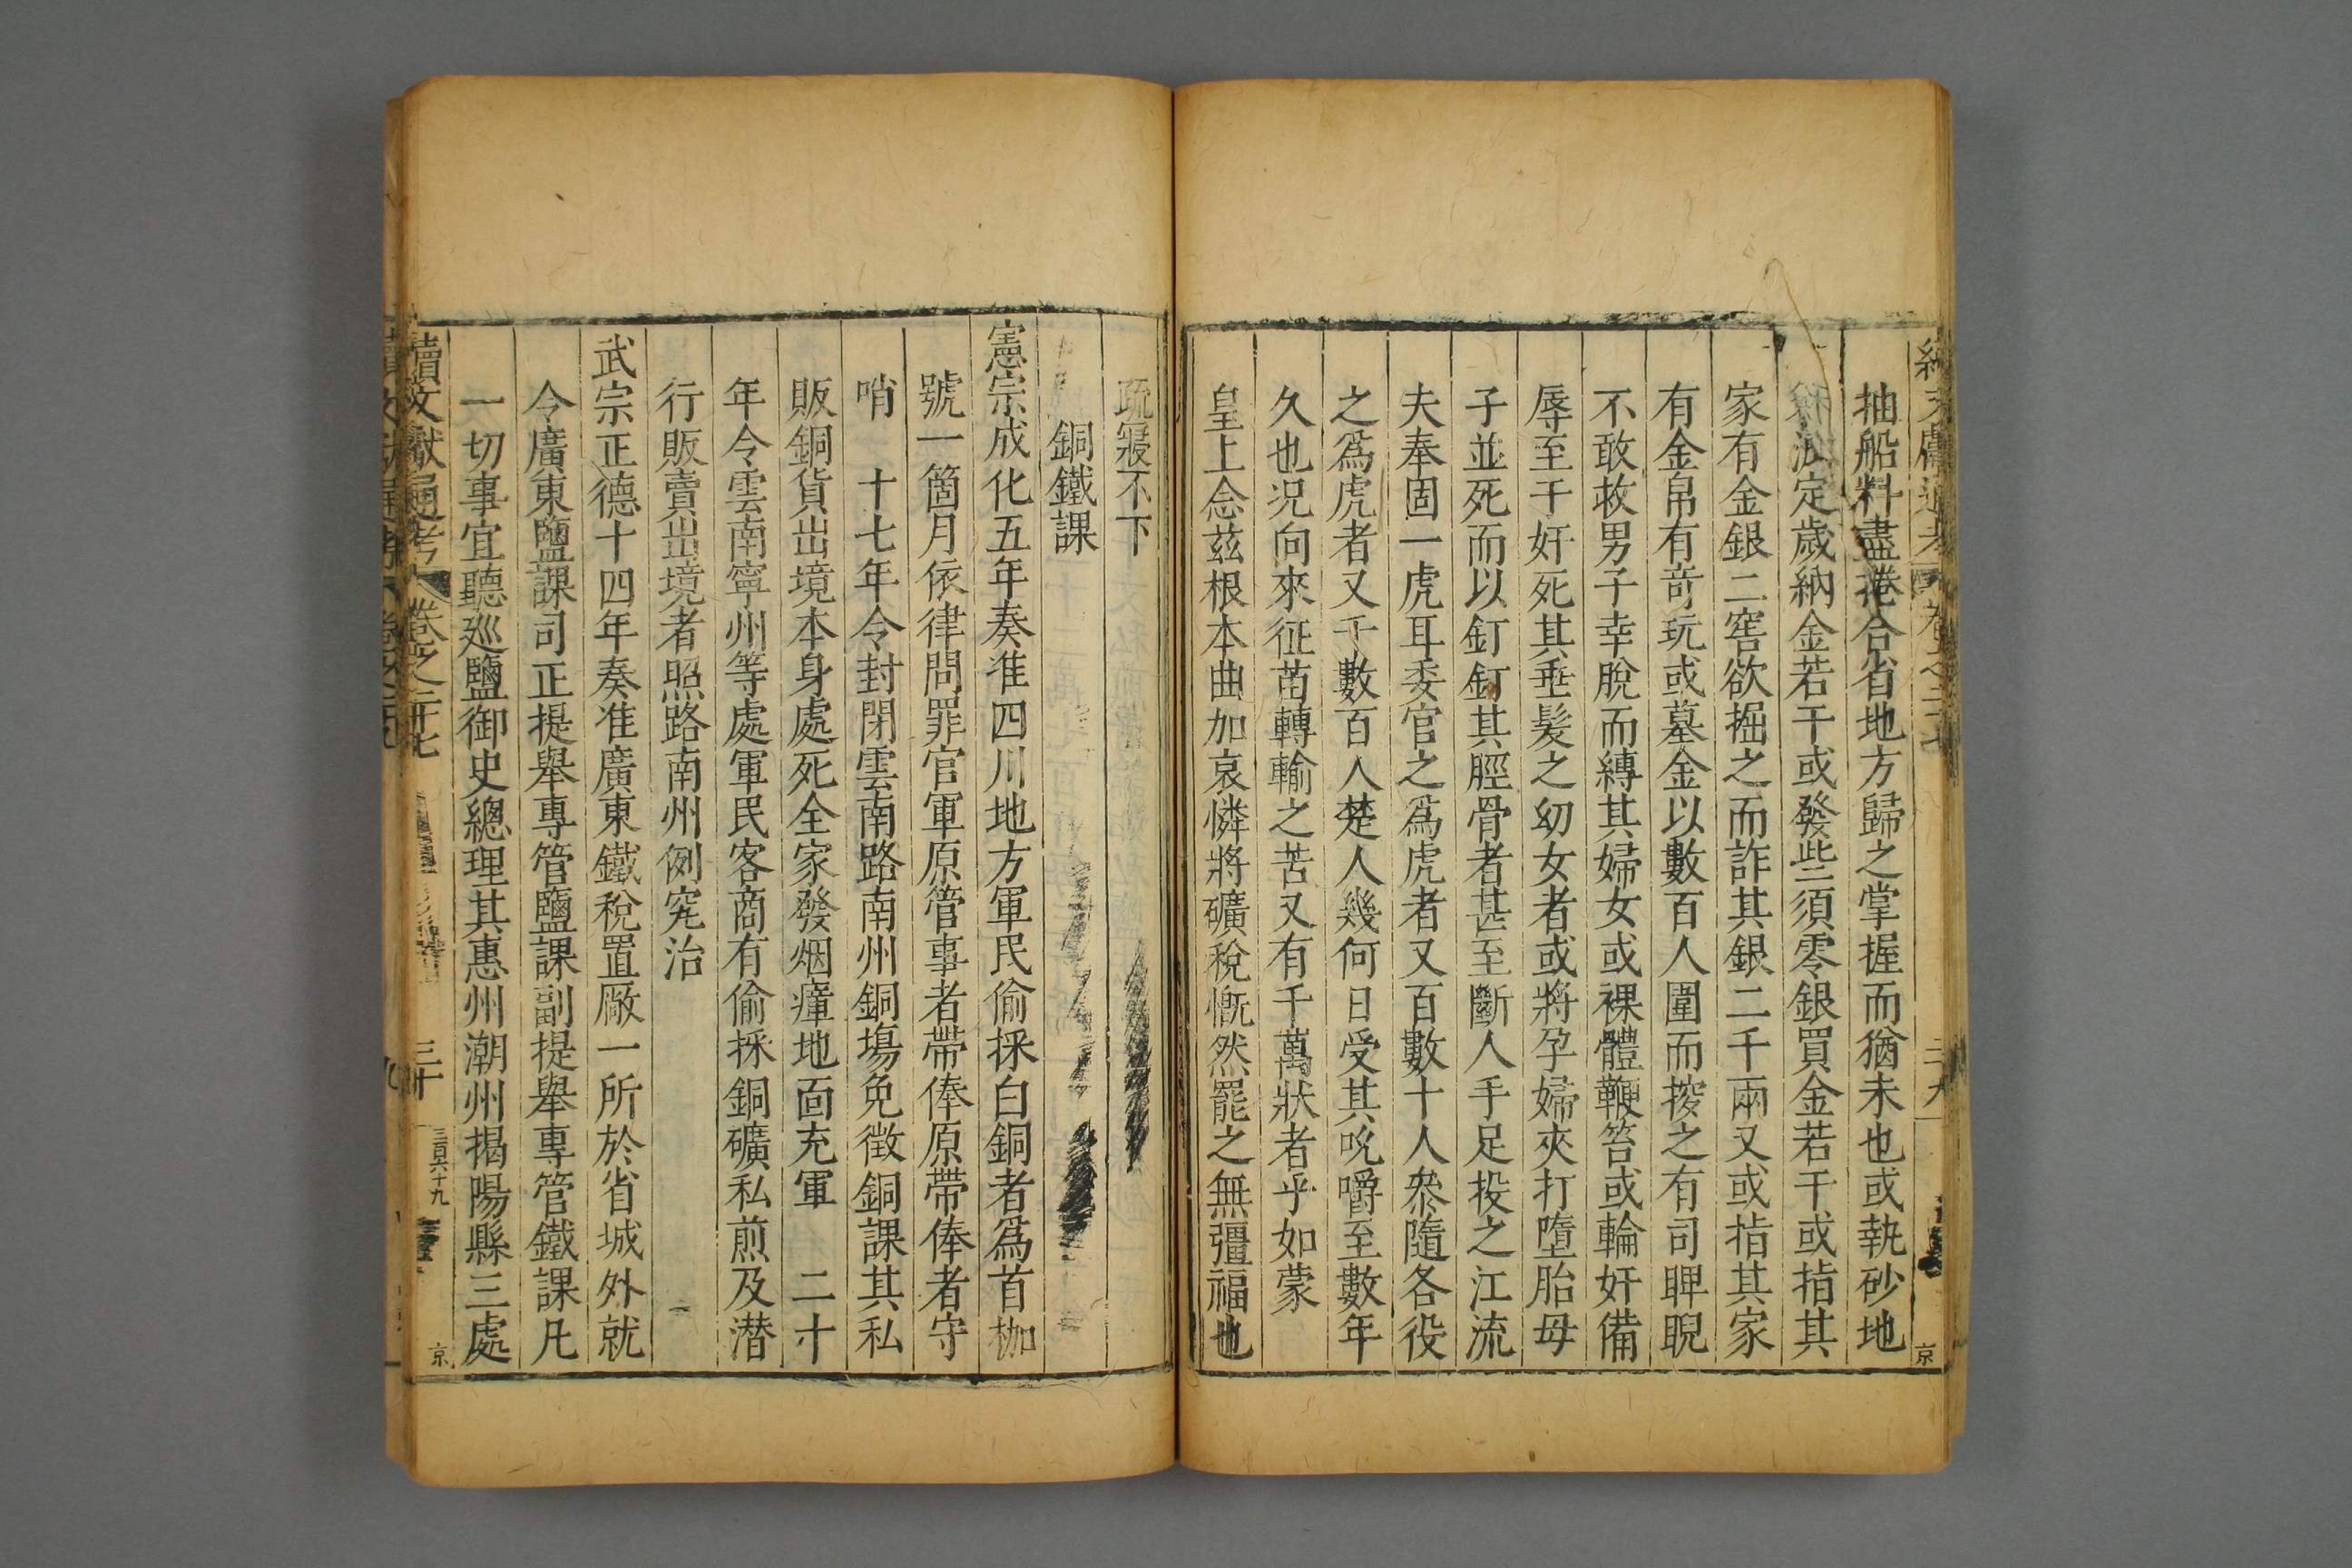 續文獻通考 卷之二十七 二十九 京
抽船料盡捲合省地方歸之掌握而猶未也或執砂地
定歲納金若干或發些須零銀買金若干或指其
家有金銀二窖欲掘之而詐其銀二千兩又或指其家
有金帛有竒玩或墓金以數百人圍而搜之有司睥睨
不敢救男子幸脫而縛其婦女或裸體鞭笞或輪奸備
辱至于奸死其垂髮之幼女者或將孕婦夾打墮胎母
子並死而以釘釘其脛骨者甚至斷人手足投之江流
夫奉固一虎耳委官之爲虎者又百數十人叅隨各役
之爲虎者又千數百人楚人幾何日受其吮嚼至數年
久也況向來征苗轉輸之苦又有千萬狀者乎如蒙
皇上念茲根本曲加哀憐將礦稅慨然罷之無彊福也
疏寢不下
銅鐵課
憲宗成化五年奏准四川地方軍民偷採白銅者爲首枷
號一箇月依律問罪官軍原管事者帶俸原帶俸者守
哨 十七年令封閉雲南路南州銅場免徵銅課其私
販銅貨出境本身處死全家發烟瘴地面充軍 二十
年令雲南寧州等處軍民客商有偷採銅礦私煎及潛
行販賣出境者照路南州例究治
武宗正德十四年奏准廣東鐵稅置廠一所於省城外就
令廣東鹽課司正提舉專管鹽課副提舉專管鐵課凡
一切事宜聽巡鹽御史總理其惠州潮州揭陽縣三處
續文獻通考 卷之二十七 三十 三百六十九 京